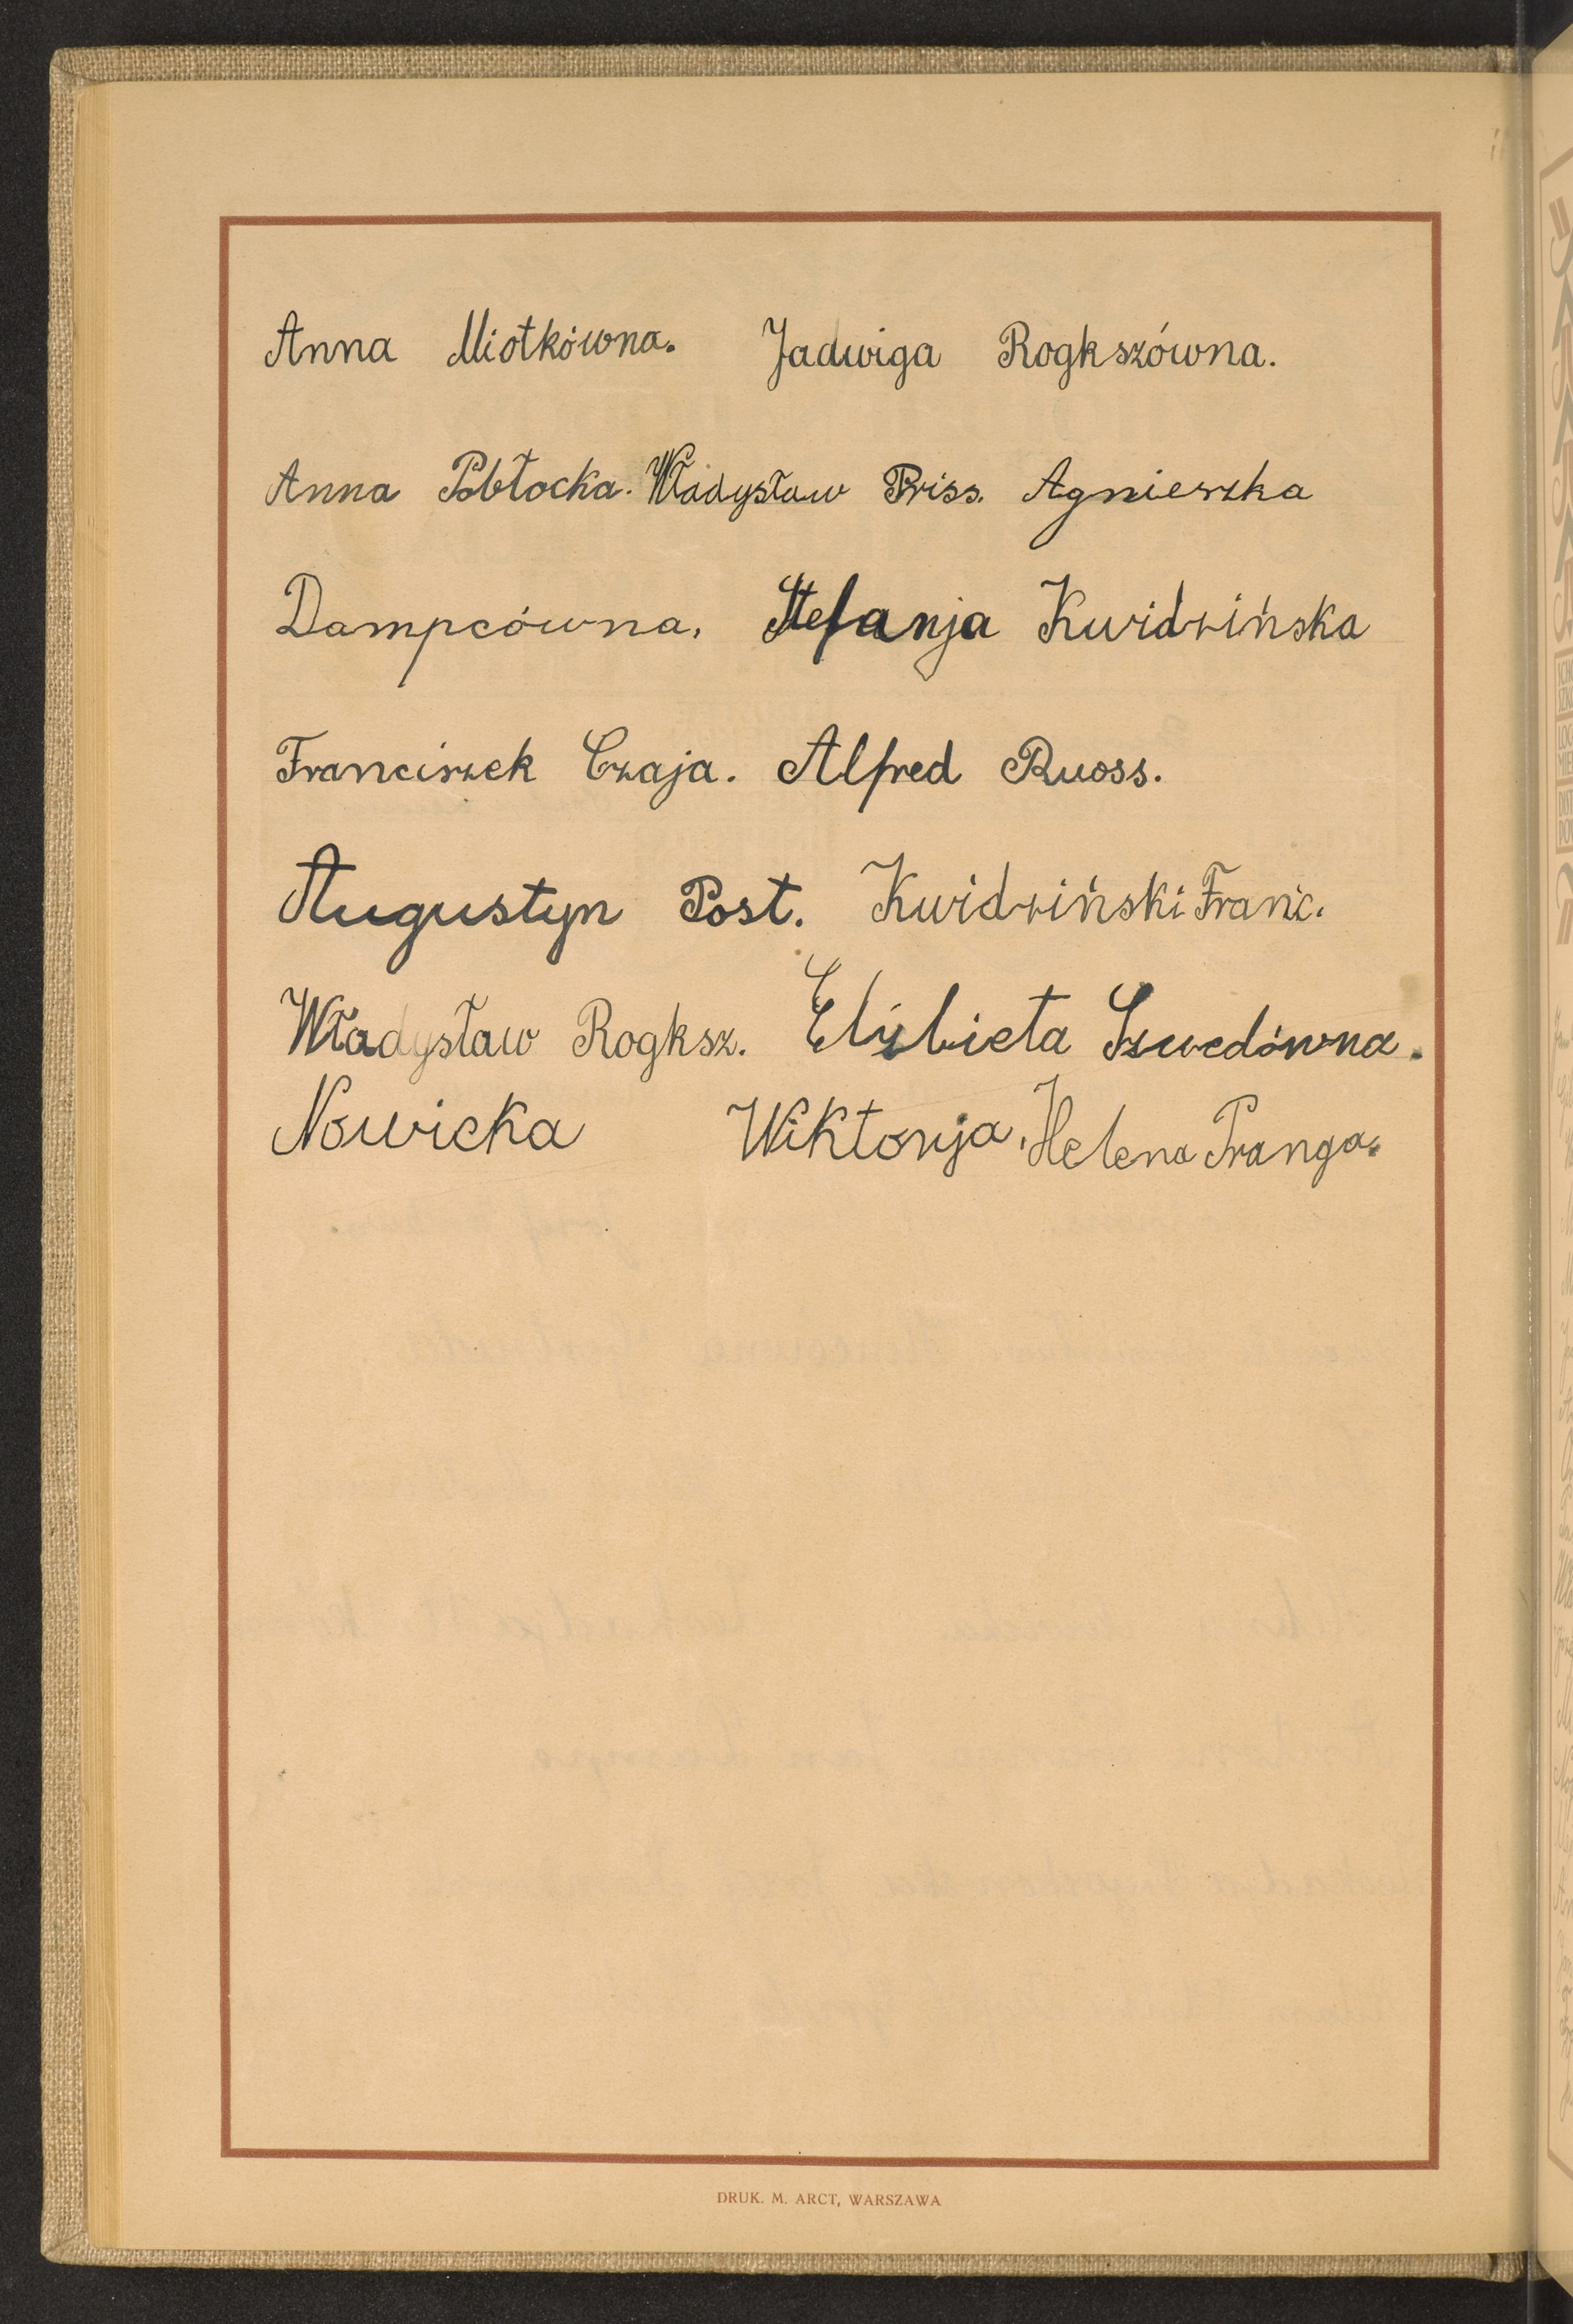 Anna Miotkówna. Jadwiga Rogkszówna.
Anna Pobłocka. Władysław Priss. Agnieszka
Dampcówna. Stefanja Kwidzińska
Franciszek Czaja. Alfred Ruoss.
Augustyn Post. Kwidziński Franc.
Władysław Rogksz. Elżbieta Szwedówna.
Nowicka Wiktorja, Helena Pranga.
DRUK. M. ARCT, WARSZAWA